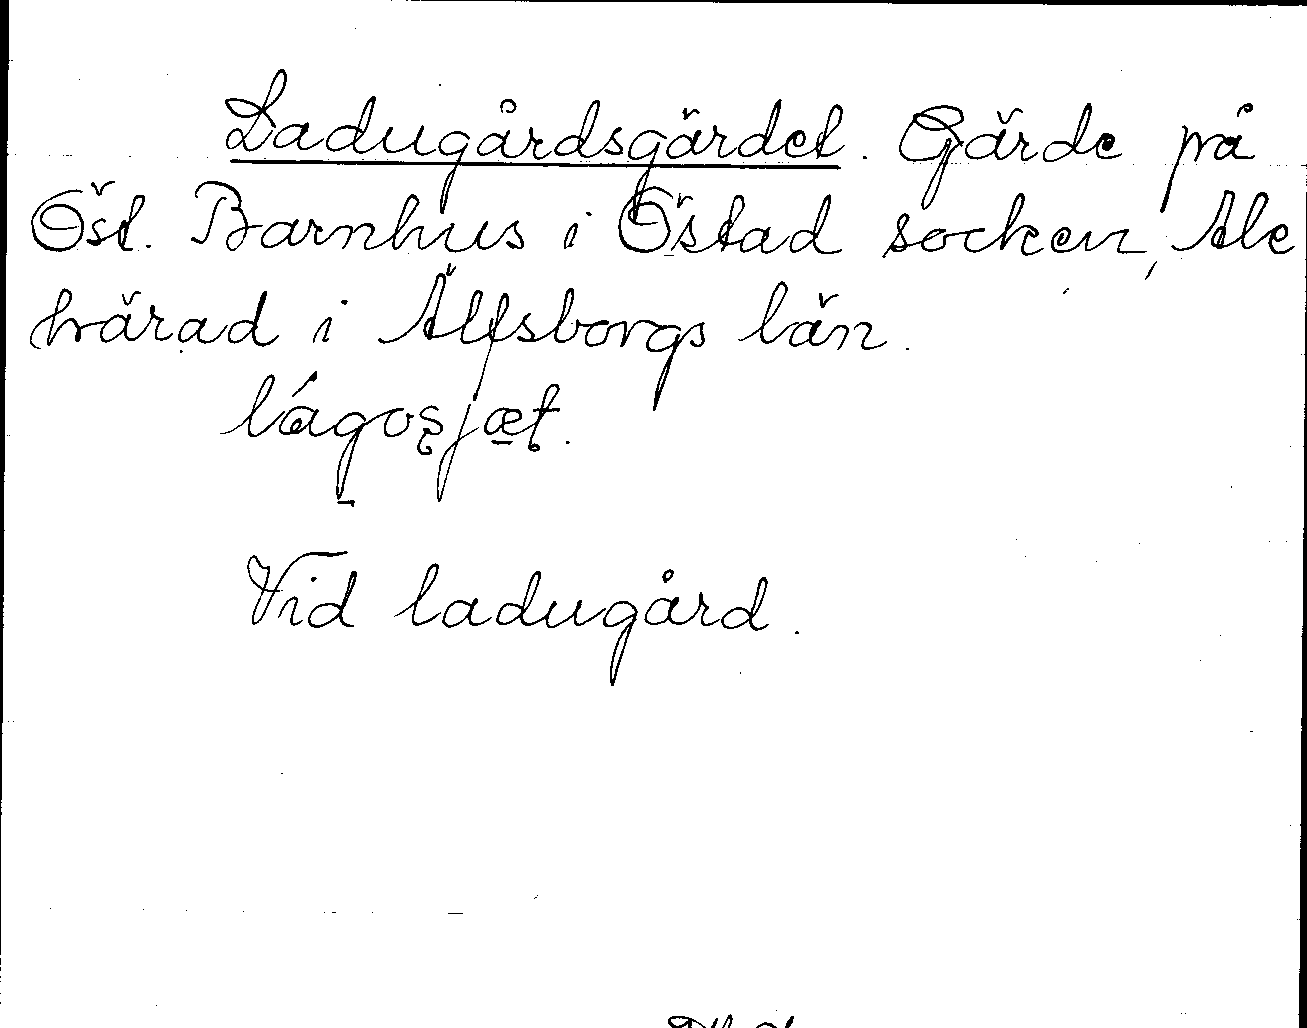 Ladugårdsgärdet. Gärde på
Öst. Barnhus i Östad socken, Ale
härad i Älfsborgs län.
lágosjæt.
Vid ladugård.